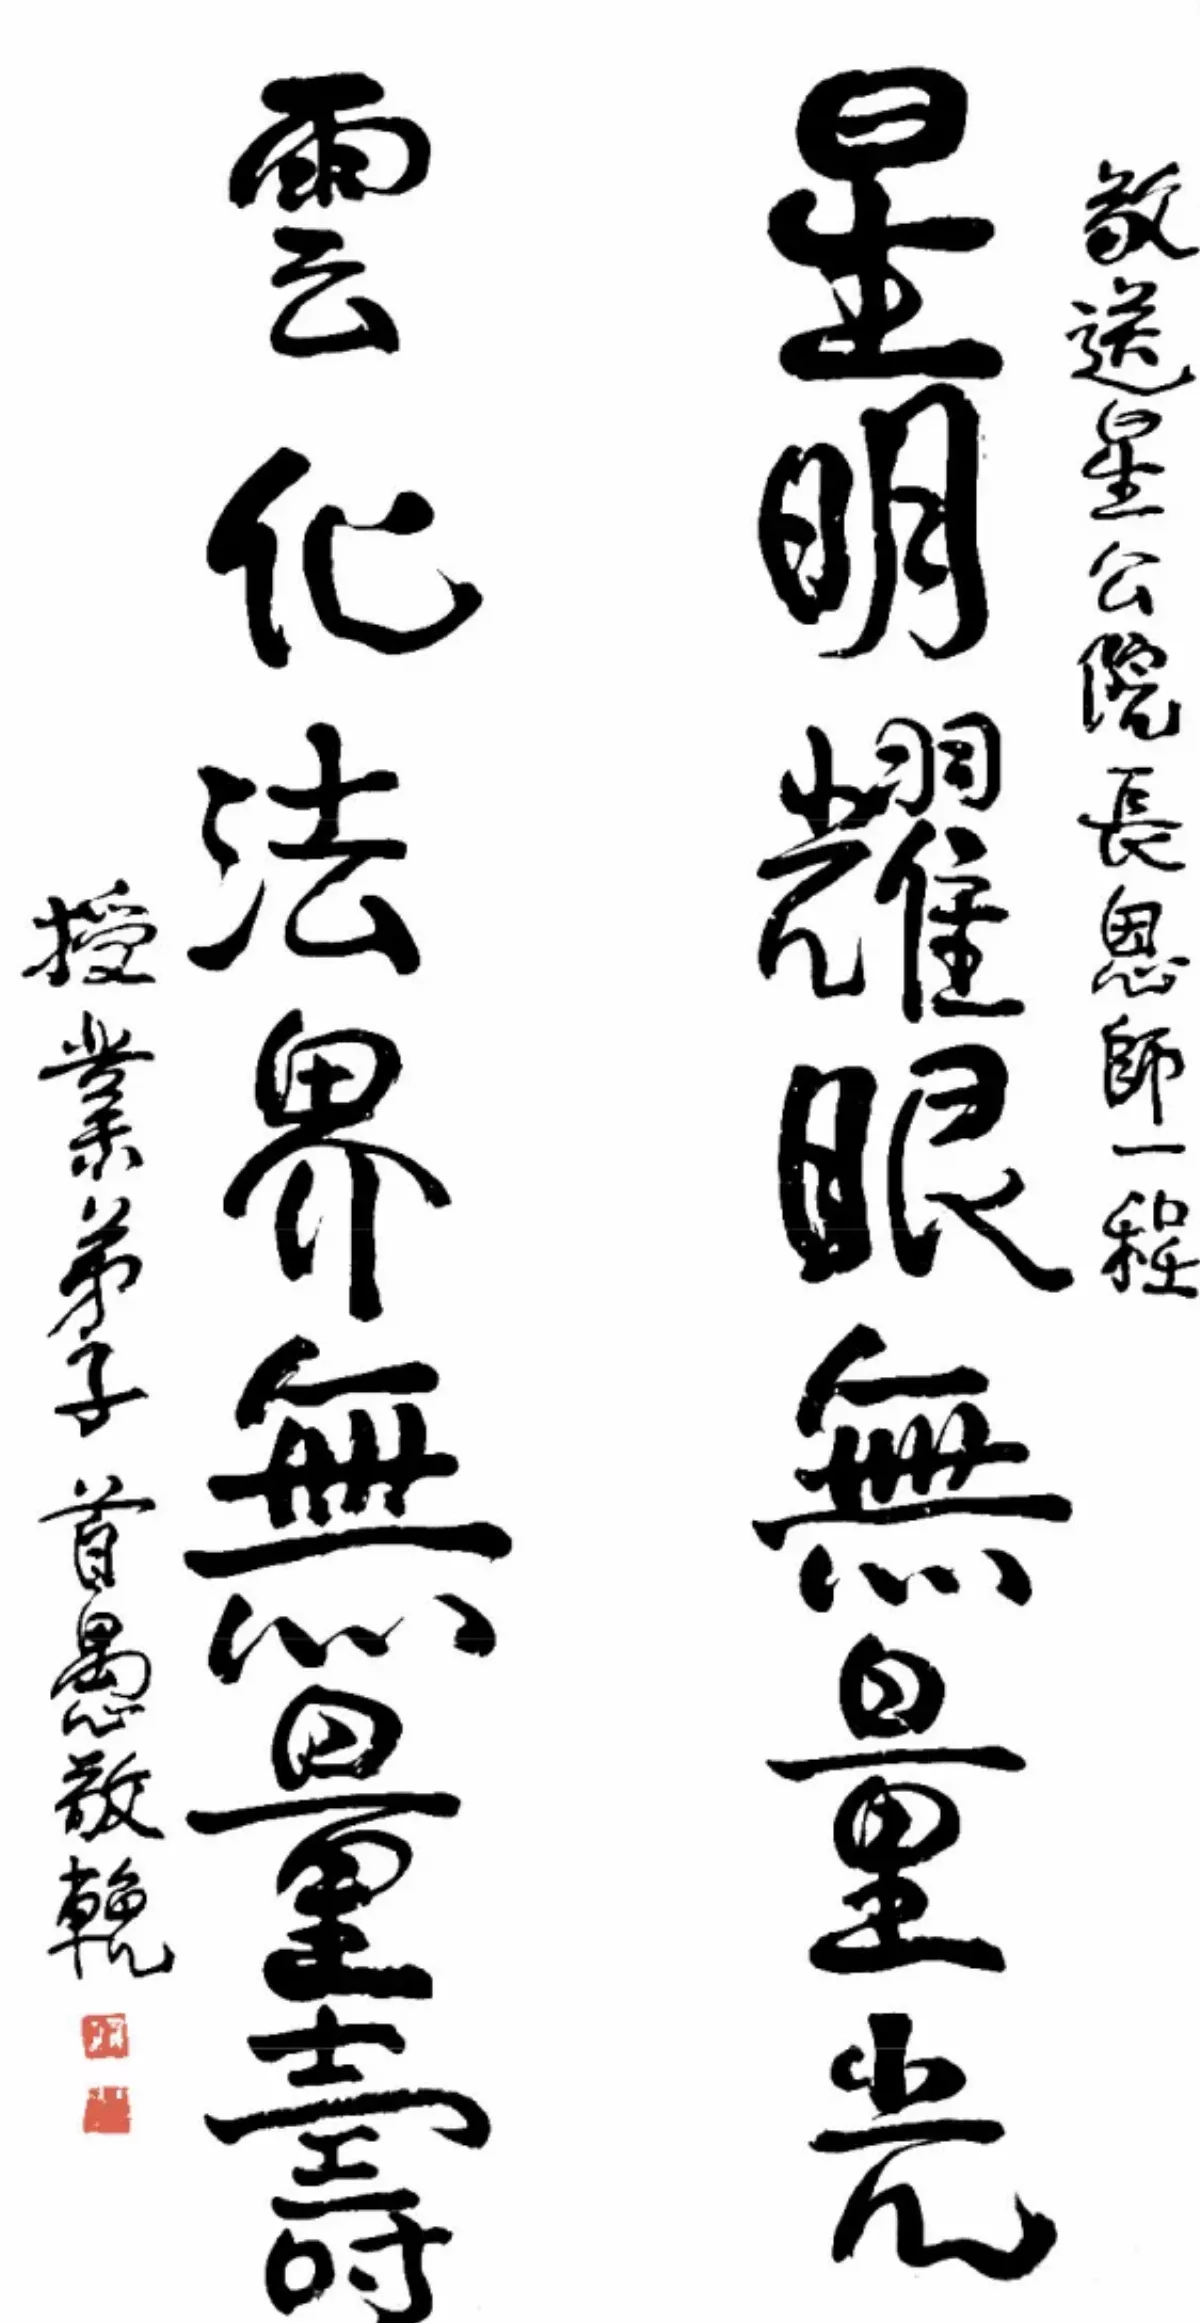 敬送星公院長恩師一程
星明耀眼無量光
雲化法界無量壽
授業弟子 首愚敬輓